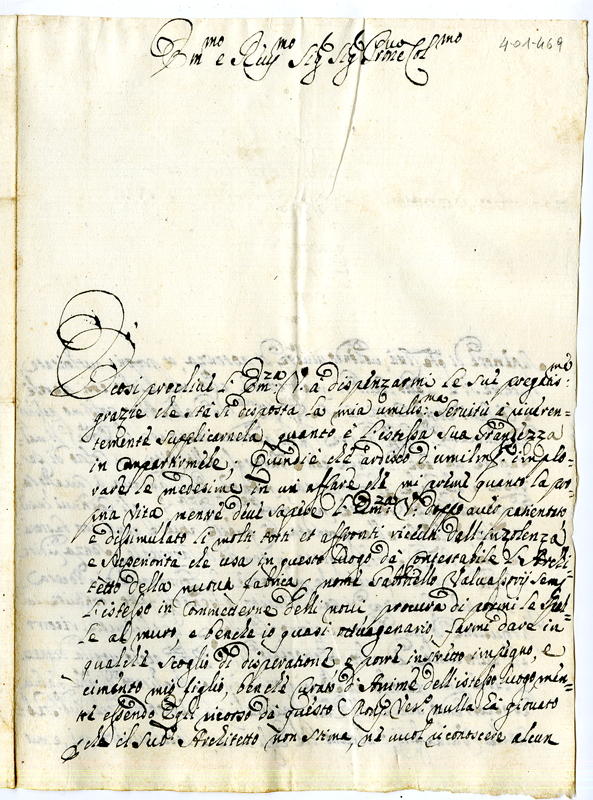 4-01-469
Em.mo e Rev.mo Sig.r Sig.r Prone Col.mo
È così proclive l'Em.za V.a à dispenzarmi le sue pregiat.me
grazie che stà sì disposta la mia umiliss.ma Servitù à riveren-
temente supplicarnela, quanto è l'istessa sua Grandezza
in compartirmele; Quindi è che ardisco d'umilm.e implo-
rare le medesime in un affare che mi preme quanto la pro-
pria vita mentre deve sapere l'Em.za V.a doppo aver patientato
e dissimulato li molti torti et affronti ricevuti dall'insolenza
e Superiorità che usa in questo luogo da Contestabile l'Archi-
tetto della nuova fabrica, nome Gabriello Valvassori, semp.
l'istesso in commetterne delli novi procura di pormi le Spal-
le al muro, e benche io quasi ottuagenario, farmi dare in
qualche scoglio di disperatione e porre in stretto impegno, e
cimento mio figlio, benche Curato d'Anime dell'istesso luogo, men-
tre essendo Egli ricorso da questo Mons. Ves.o nulla hà giovato
che il sud.o Architetto non stima, nè vuol riconoscere alcun